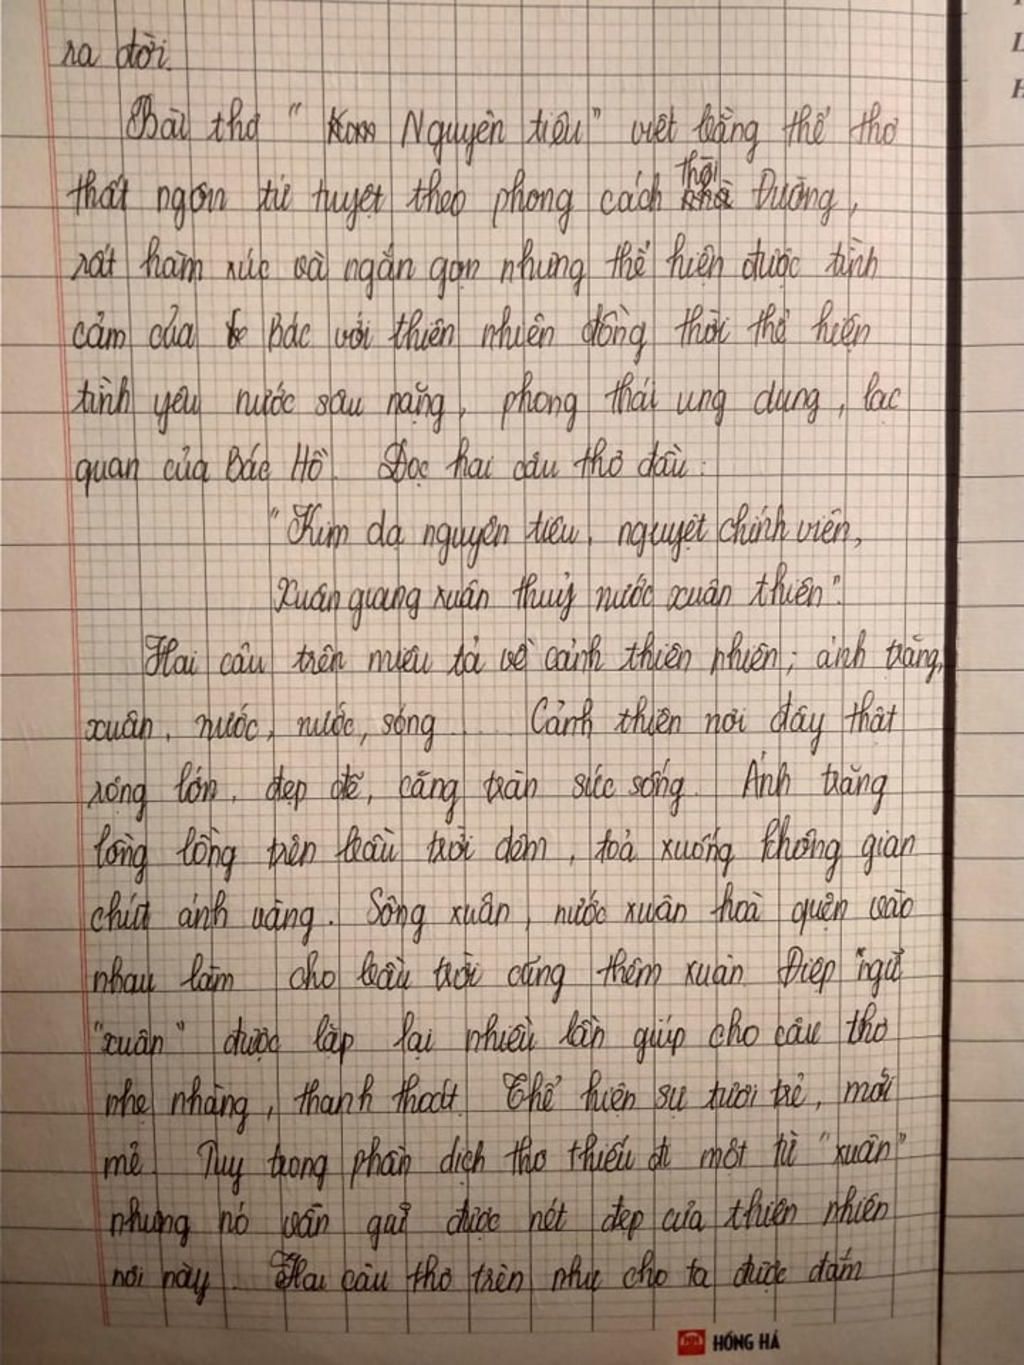 ra đời.
Bài thơ " Nguyên tiêu" viết bằng thể thơ
thất ngôn tứ tuyệt theo phong cách thời Đường,
rất hàm xúc và ngắn gọn nhưng thể hiện được tình
cảm của Bác với thiên nhiên đồng thời thể hiện
tình yêu nước sâu nặng, phong thái ung dung, lạc
quan của Bác Hồ. Đọc hai câu thơ đầu:
"Kim dạ nguyên tiêu, nguyệt chính viên,
Xuân giang xuân thuỷ nước xuân thiên".
Hai câu trên miêu tả về cảnh thiên nhiên; ánh trăng,
xuân, nước, nước, sóng... Cảnh thiên nơi đây thật
rộng lớn, đẹp đẽ, căng tràn sức sống. Ánh trăng
lồng lộng trên bầu trời đêm, toả xuống không gian
chút ánh vàng. Sông xuân, nước xuân hoà quện vào
nhau làm cho bầu trời cũng thêm xuân. Điệp "ngữ
"xuân" được lặp lại nhiều lần giúp cho câu thơ
nhẹ nhàng, thanh thoát. Thể hiện sự tươi trẻ, mới
mẻ. Tuy trong phần dịch thơ thiếu đi một từ "xuân"
nhưng nó vẫn giữ được nét đẹp của thiên nhiên
nơi này. Hai câu thơ trên như cho ta được đắm
HỒNG HÀ